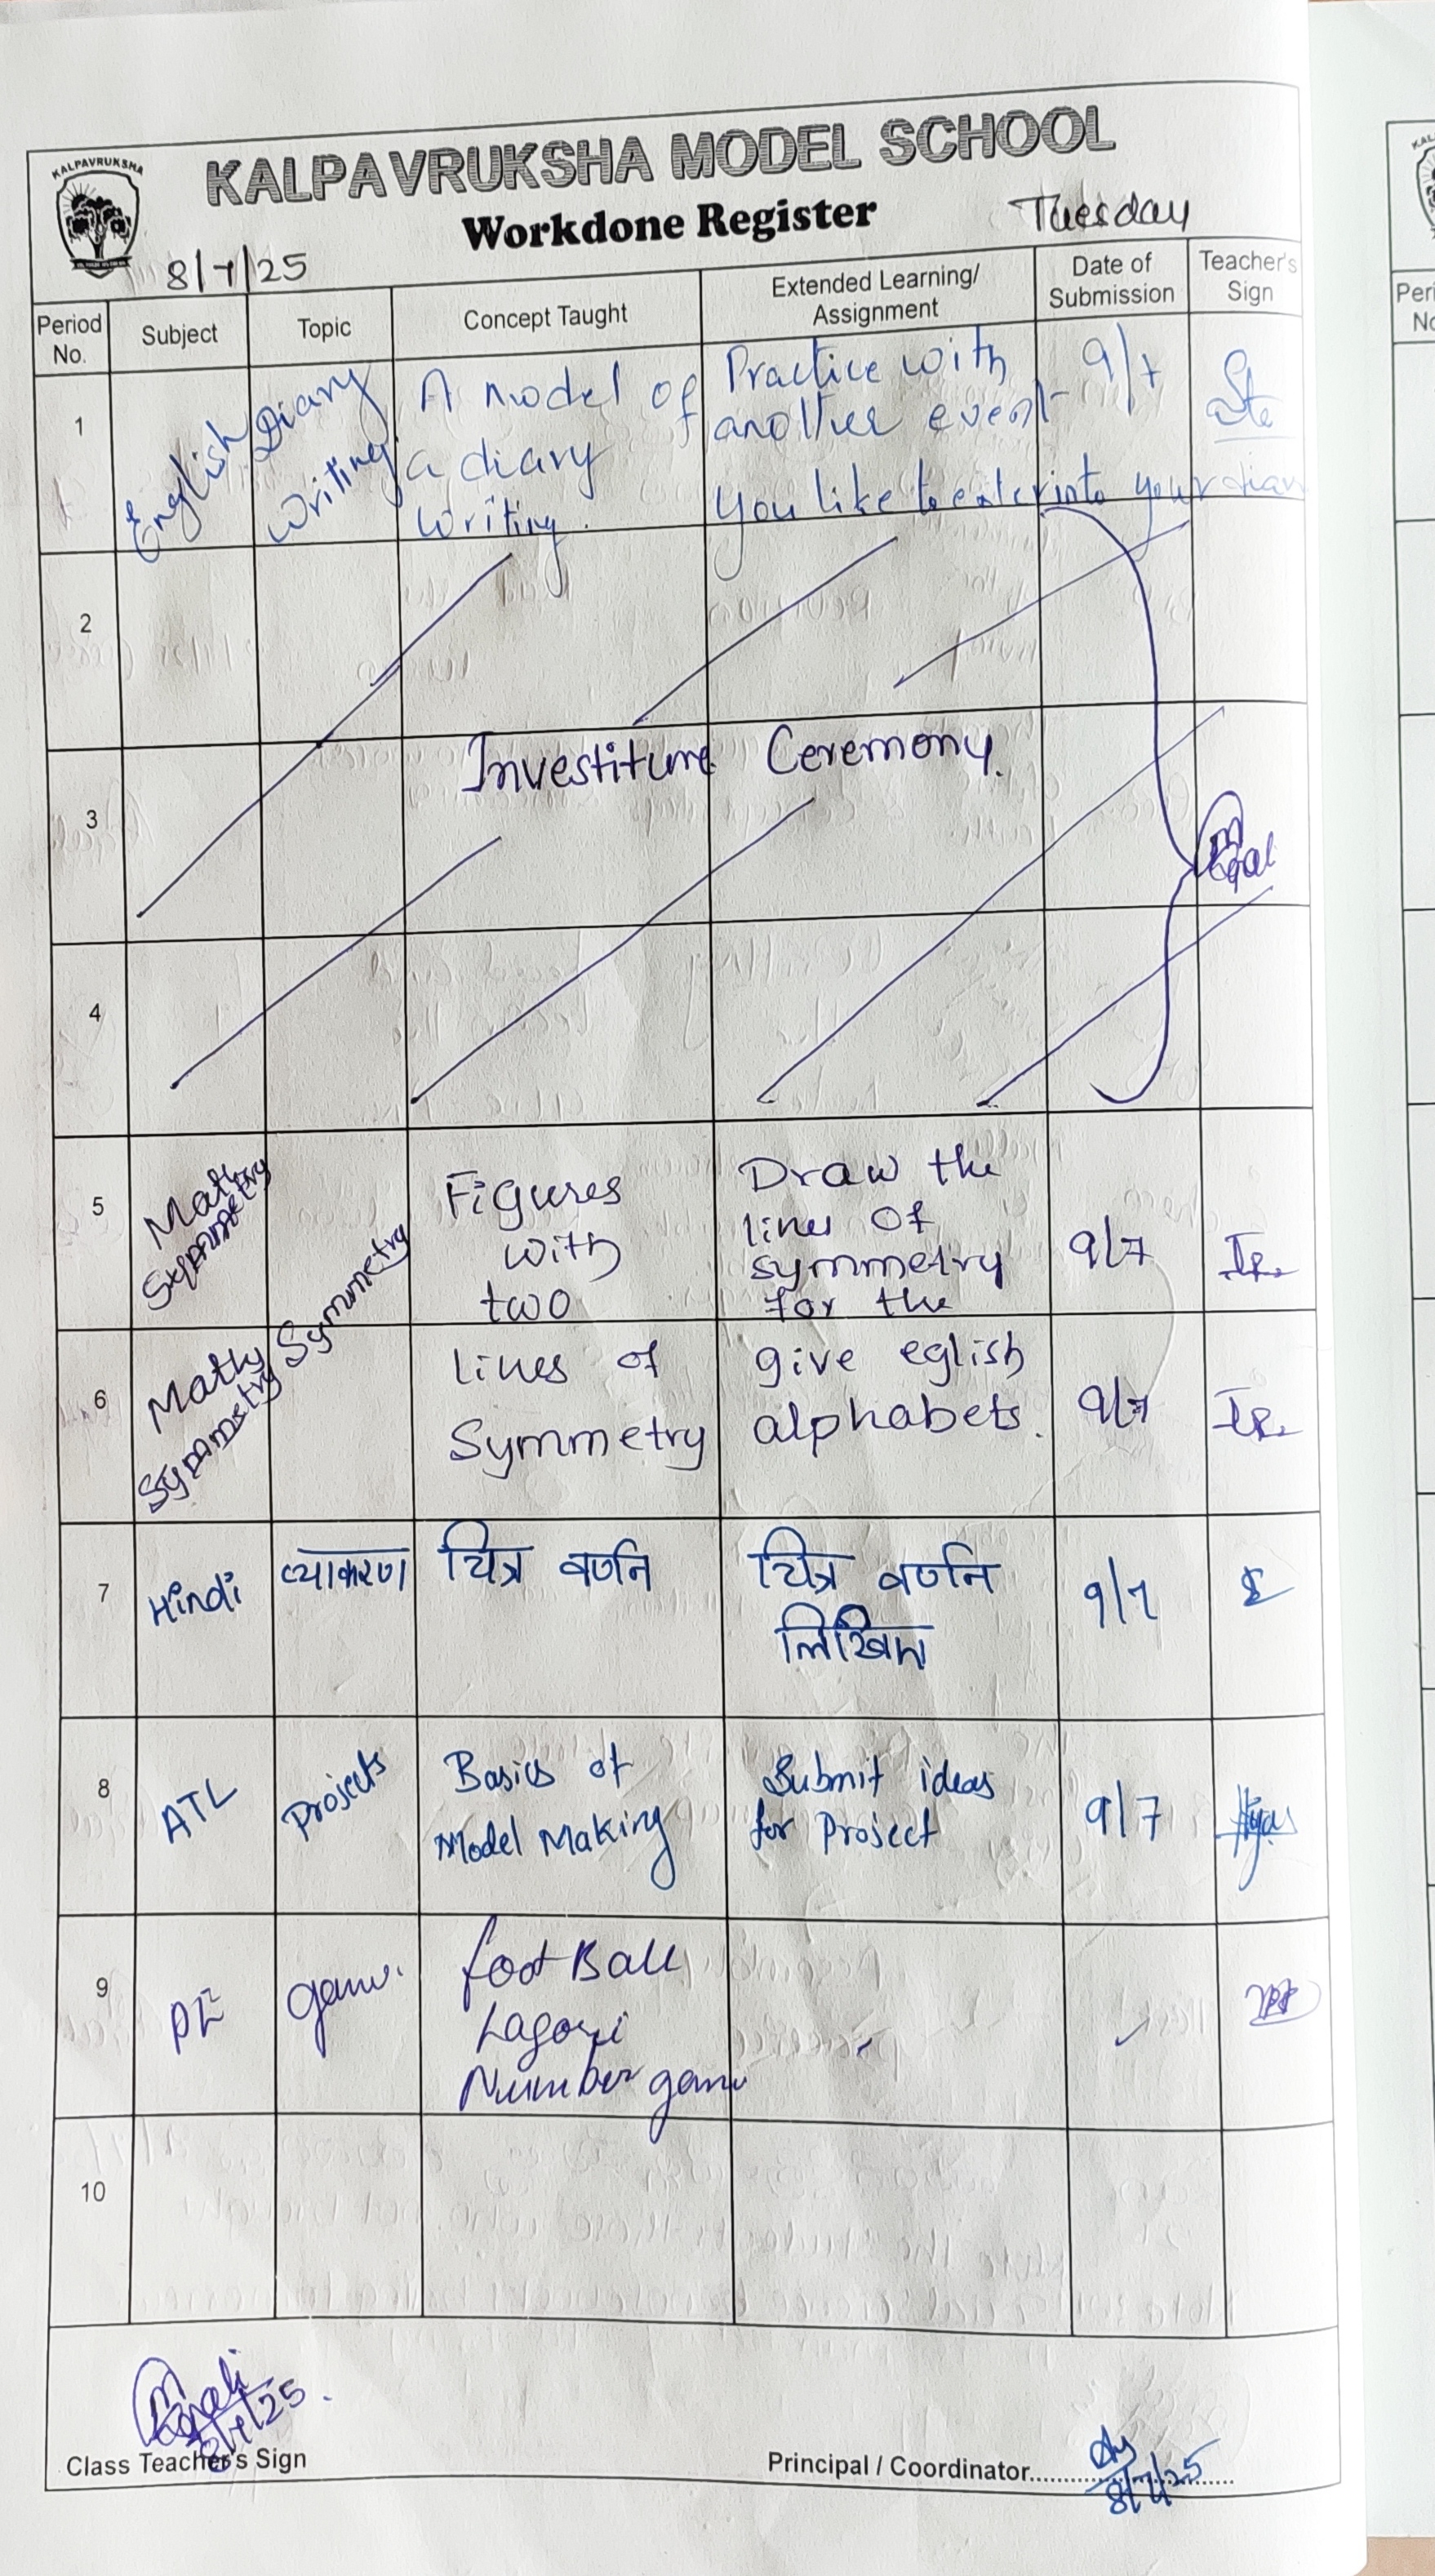 KALPAVRUKSHA
KALPAVRUKSHA MODEL SCHOOL
Workdone Register
Tuesday
8/7/25
Period No.
Subject
Topic
Concept Taught
Extended Learning/
Assignment
Date of
Submission
Teacher's
Sign
1
English
Diary
Writing
A model of
a diary
writing.
Practice with
another event
you like to enter into your diary
9/7
2
3
Investiture Ceremony.
4
5
Math
Symmetry
Figures
with
two
Draw the
lines of
symmetry
for the
9/7
6
Maths
Symmetry
Symmetry
lines of
Symmetry
give eglish
alphabets.
9/7
7
Hindi
व्याकरण
चित्र वर्णन
चित्र वर्णन
लिखिए
9/7
8
ATL
Projects
Basics of
Model Making
Submit ideas
for Project
9/7
9
PE
game.
foot Ball
Lagori
Number game
10
8/7/25.
Class Teacher's Sign
Principal / Coordinator
8/7/25